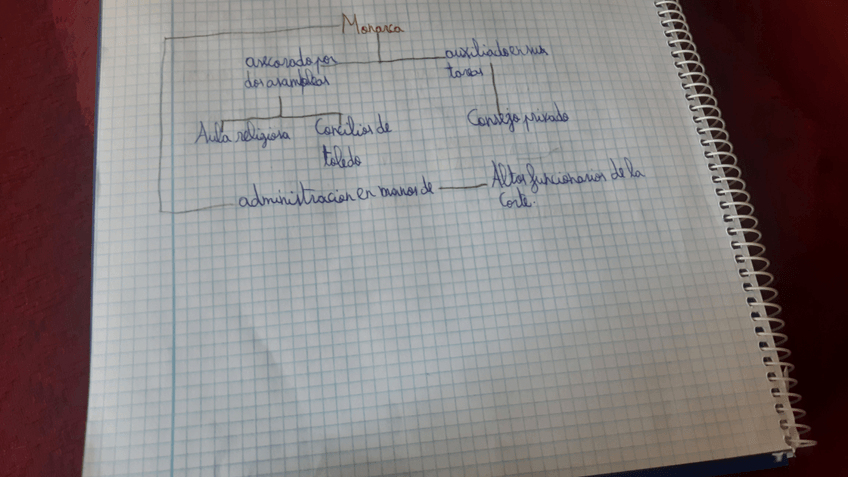 Monarca
asesorado por
dos asambleas
auxiliado en sus
tareas
Aula religiosa
Concilios de
toledo
Consejo privado
administracion en manos de
Altos funcionarios de la
Corte.